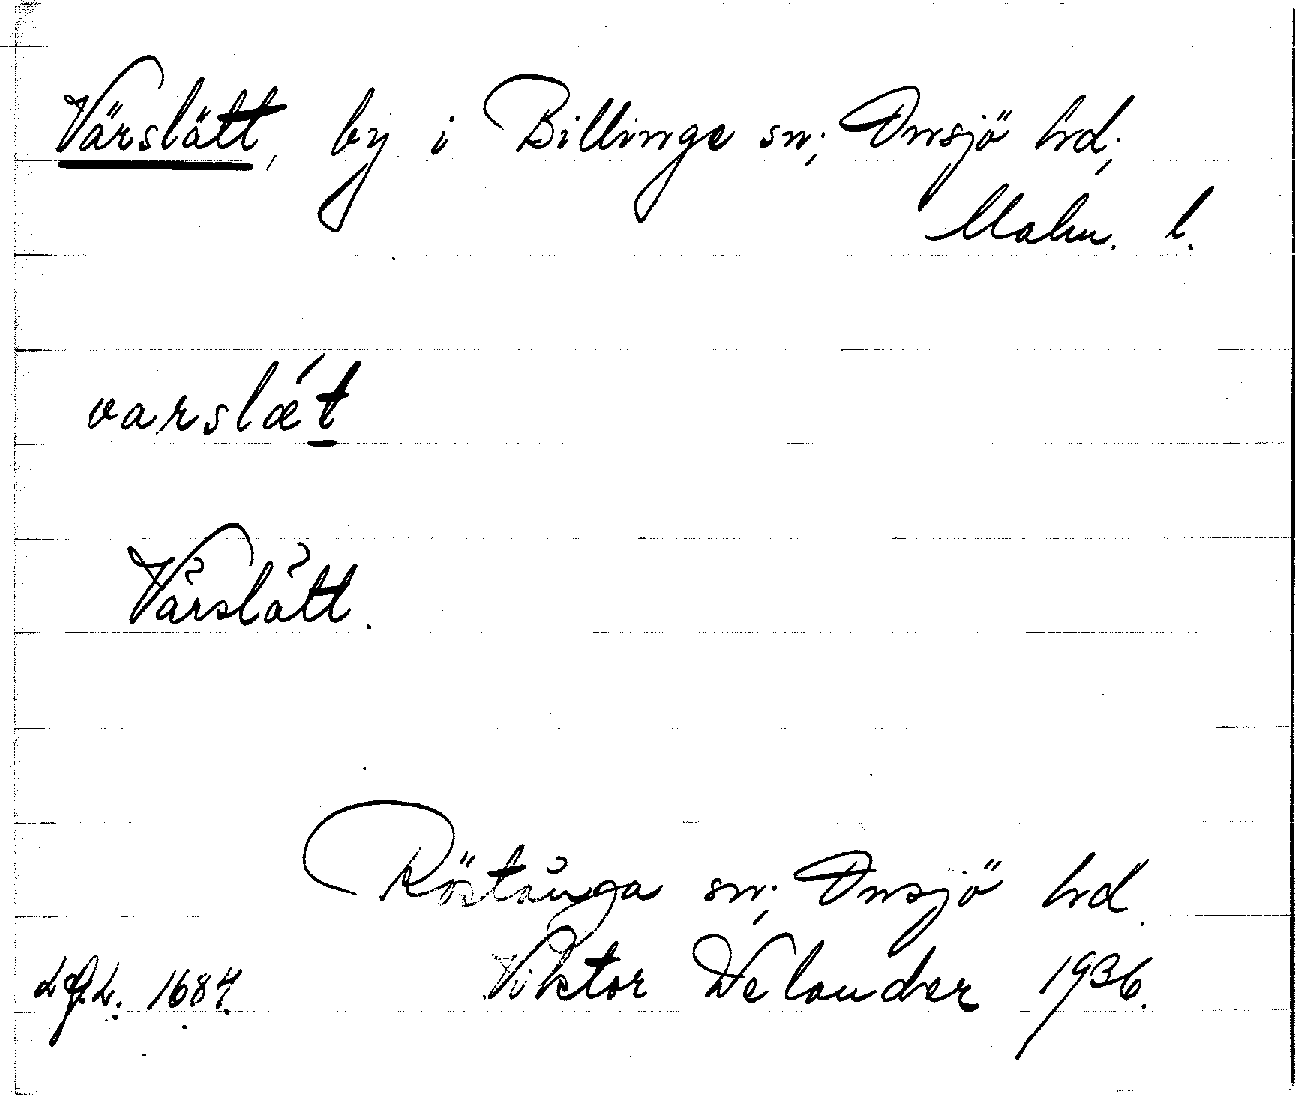 Värslätt, by i Billinge sn; Onsjö hd;
Malm. l.
varslǽt
Vårslått.
Röstånga sn; Onsjö hd.
1684. Viktor Welander 1936.